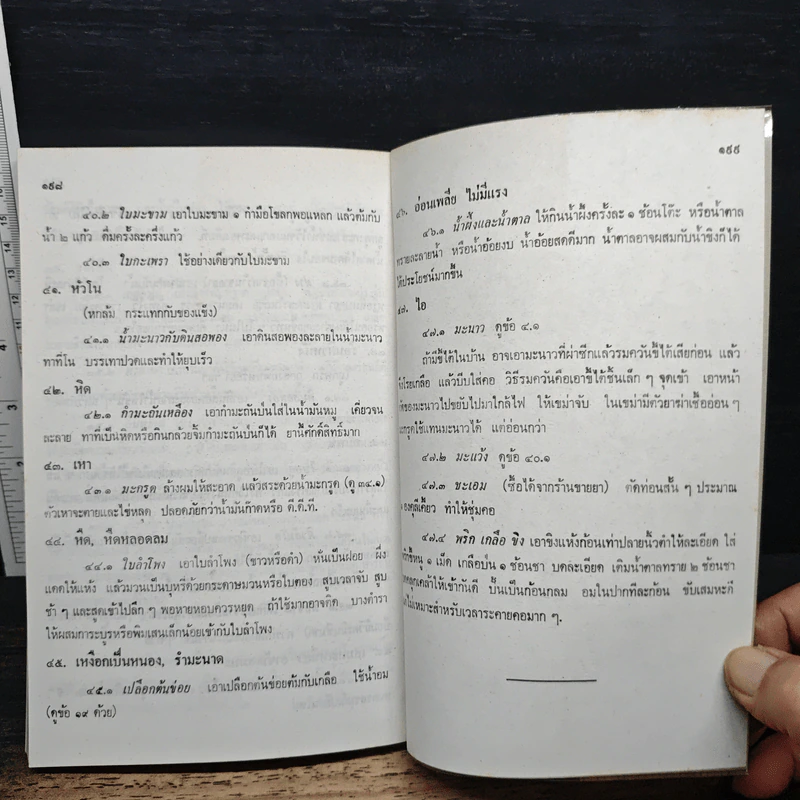 ๑๙๘
๔๐.๒ ใบมะขาม เอาใบมะขาม ๑ กำมือโขลกพอแหลก แล้วต้มกับ
น้ำ ๒ แก้ว ดื่มครั้งละครึ่งแก้ว
๔๐.๓ ใบกะเพรา ใช้อย่างเดียวกับใบมะขาม
๔๑. หัวโน
(หกล้ม กระแทกกับของแข็ง)
๔๑.๑ น้ำมะนาวกับดินสอพอง เอาดินสอพองละลายในน้ำมะนาว
ทาที่โน บรรเทาปวดและทำให้ยุบเร็ว
๔๒. หิด
๔๒.๑ กำมะถันเหลือง เอากำมะถันป่นใส่ในน้ำมันหมู เคี่ยวจน
ละลาย ทาที่เป็นหิดหรือกินกล้วยจิ้มกำมะถันป่นก็ได้ ยานี้ศักดิ์สิทธิ์มาก
๕๓. เหา
๔๓.๑ มะกรูด ล้างผมให้สะอาด แล้วสระด้วยน้ำมะกรูด (ดู ๓๔.๑)
ตัวเหาจะตายและไข่หลุด ปลอดภัยกว่าน้ำมันก๊าดหรือ ดี.ดี.ที.
๔๔. หืด, หืดหลอดลม
๔๔.๑ ใบลำโพง เอาใบลำโพง (ขาวหรือดำ) หั่นเป็นฝอย ผึ่ง
แดดให้แห้ง แล้วมวนเป็นบุหรี่ด้วยกระดาษมวนหรือใบตอง สูบเวลาจับ สูบ
ช้า ๆ และสูดเข้าไปลึก ๆ พอหายหอบควรหยุด ถ้าใช้มากอาจติด บางตำรา
ให้ผสมการะบูรหรือพิมเสนเล็กน้อยเข้ากับใบลำโพง
๔๕. เหงือกเป็นหนอง, รำมะนาด
๔๕.๑ เปลือกต้นข่อย เอาเปลือกต้นข่อยต้มกับเกลือ ใช้น้ำอม
(ดูข้อ ๑๙ ด้วย)
๑๙๙
๔๖. อ่อนเพลีย ไม่มีแรง
๔๖.๑ น้ำผึ้งและน้ำตาล ให้กินน้ำผึ้งครั้งละ ๑ ช้อนโต๊ะ หรือน้ำตาล
ทรายละลายน้ำ หรือน้ำอ้อยงบ น้ำอ้อยสดดีมาก น้ำตาลอาจผสมกับน้ำขิงก็ได้
ให้ประโยชน์มากขึ้น
๔๗. ไอ
๔๗.๑ มะนาว ดูข้อ ๔.๑
ถ้ามีขี้ไต้ในบ้าน อาจเอามะนาวที่ผ่าซีกแล้วรมควันขี้ไต้เสียก่อน แล้ว
โรยเกลือ แล้วบีบใส่คอ วิธีรมควันคือเอาขี้ไต้ชิ้นเล็ก ๆ จุดเข้า เอาหน้า
ของมะนาวไปขยับไปมาใกล้ไฟ ให้เขม่าจับ ในเขม่ามีตัวยาฆ่าเชื้ออ่อน ๆ
มะกรูดใช้แทนมะนาวได้ แต่อ่อนกว่า
๔๗.๒ มะแว้ง ดูข้อ ๔๐.๑
๔๗.๓ ชะเอม (ซื้อได้จากร้านขายยา) ตัดท่อนสั้น ๆ ประมาณ
องคุลีเคี้ยว ทำให้ชุ่มคอ
๔๗.๔ พริก เกลือ ขิง เอาขิงแห้งก้อนเท่าปลายนิ้วตำให้ละเอียด ใส่
พริกขี้หนู ๑ เม็ด เกลือป่น ๑ ช้อนชา บดละเอียด เติมน้ำตาลทราย ๒ ช้อนชา
คลุกเคล้าให้เข้ากันดี ปั้นเป็นก้อนกลม อมในปากทีละก้อน ขับเสมหะดี
ไม่เหมาะสำหรับเวลาระคายคอมาก ๆ.